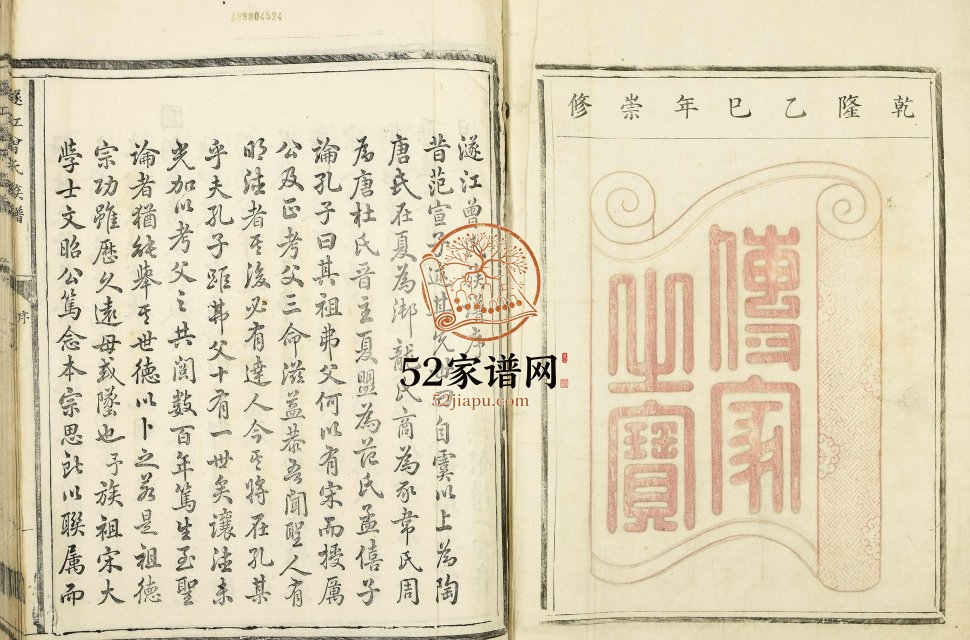 399004524
乾隆乙巳年崇修
傳家
之寶
遂江曾氏族譜序
昔范宣子述其先世曰自虞以上為陶
唐氏在夏為御龍氏商為豕韋氏周
為唐杜氏晉主夏盟為范氏孟僖子
論孔子曰其祖弗父何以有宋而授厲
公及正考父三命滋益恭吾聞聖人有
明德者其後必有達人今其將在孔某
乎夫孔子距弗父十有一世矣讓德未
光加以考父之共閱數百年篤生至聖
論者猶能舉其世德以卜之若是祖德
宗功雖歷久遠毋或墜也予族祖宋大
學士文昭公篤念本宗思所以聯屬而
遂江曾氏族譜
序
52家谱网
52jiapu.com